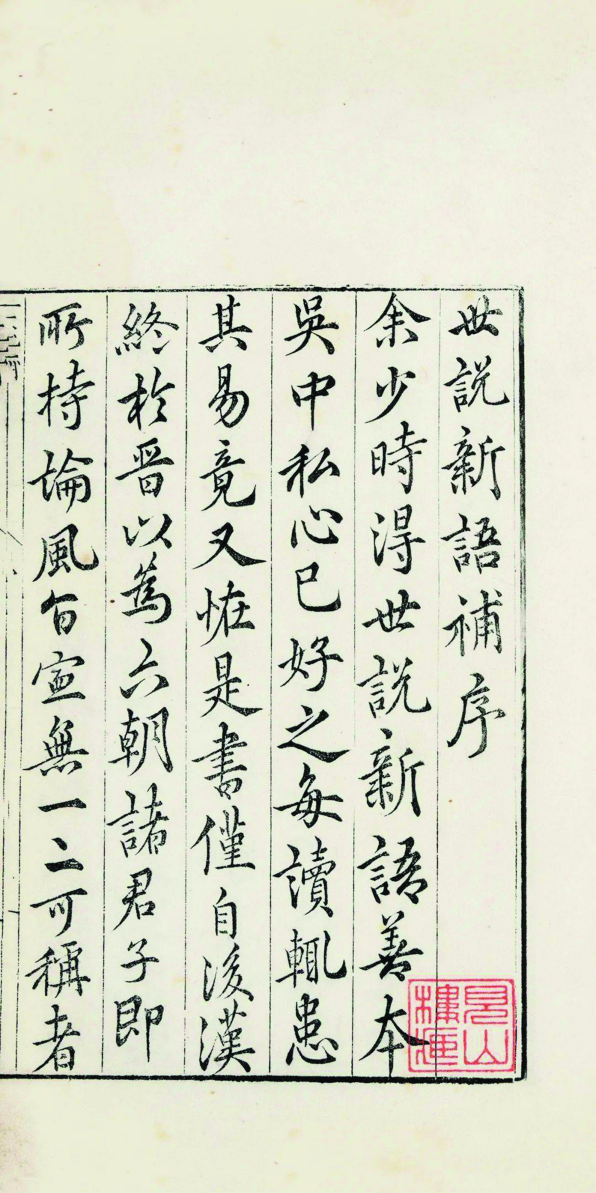 世說新語補序
余少時得世說新語善本
吳中私心已好之每讀輒患
其易竟又恠是書僅自後漢
終於晉以為六朝諸君子即
所持論風旨寧無一二可稱者